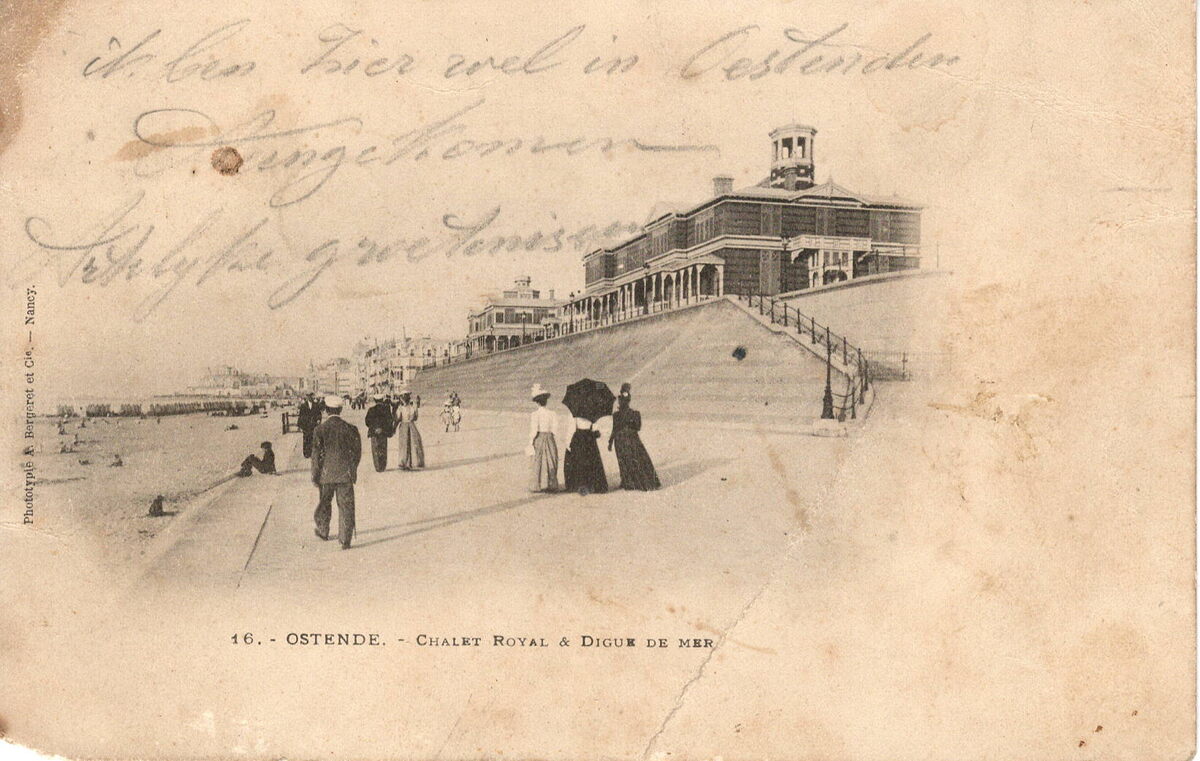 ik ben hier wel in Oostenden
Aangekomen
groetnissen
Phototypie A. Bergeret et Cie. — Nancy.
16. - OSTENDE. - CHALET ROYAL & DIGUE DE MER